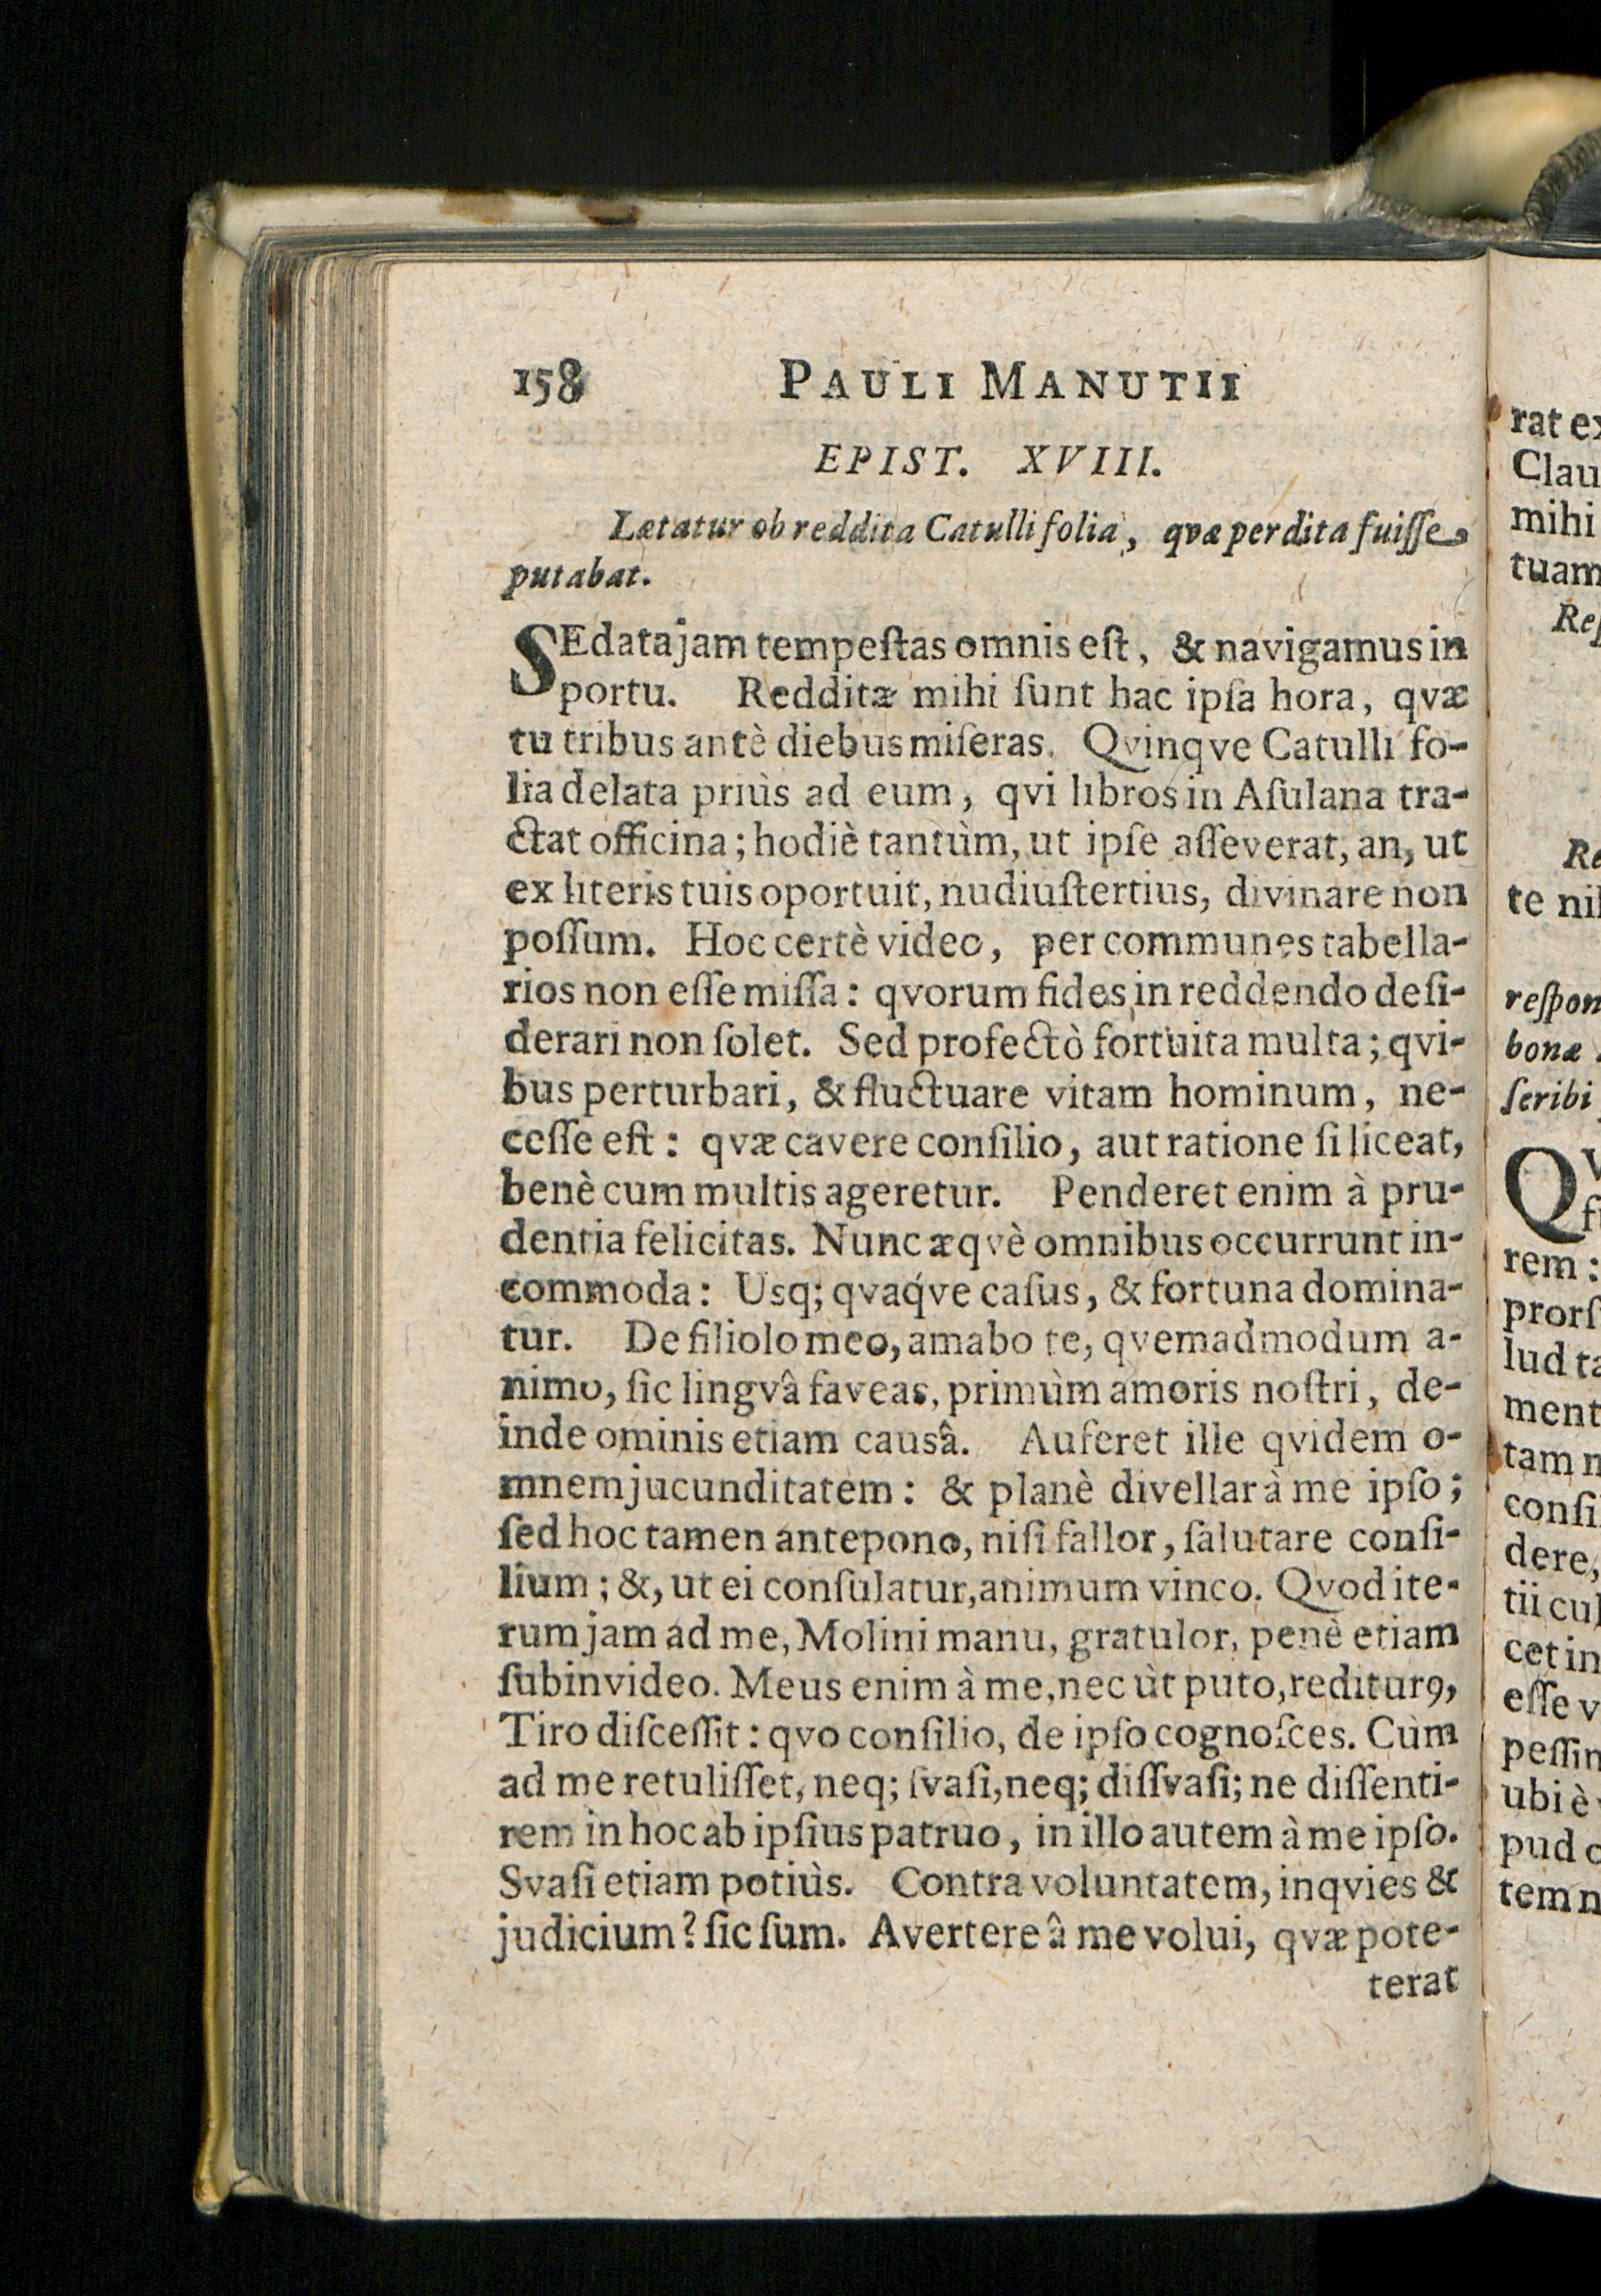 158 PAULI MANUTII
EPIST. XVIII.
Lætatur ob reddita Catulli folia, qvæ perdita fuiſſe
putabat.
SEdata jam tempeſtas omnis eſt, & navigamus in
portu. Redditæ mihi ſunt hac ipſa hora, qvæ
tu tribus antè diebus miſeras. Qvinqve Catulli fo-
lia delata priùs ad eum, qvi libros in Aſulana tra-
ctat officina; hodiè tantùm, ut ipſe aſſeverat, an, ut
ex literis tuis oportuit, nudiuſtertius, divinare non
poſſum. Hoc certè video, per communes tabella-
rios non eſſe miſſa: qvorum fides in reddendo deſi-
derari non ſolet. Sed profectò fortuita multa; qvi-
bus perturbari, & fluctuare vitam hominum, ne-
ceſſe eſt: qvæ cavere conſilio, aut ratione ſi liceat,
benè cum multis ageretur. Penderet enim à pru-
dentia felicitas. Nunc æqvè omnibus occurrunt in-
commoda: Usq; qvaq́ve caſus, & fortuna domina-
tur. De filiolo meo, amabo te, qvemadmodum a-
nimo, ſic lingvâ faveas, primùm amoris noſtri, de-
inde ominis etiam causâ. Auferet ille qvidem o-
mnem jucunditatem: & planè divellar à me ipſo;
ſed hoc tamen antepono, niſi fallor, ſalutare conſi-
lium; &, ut ei conſulatur, animum vinco. Qvod ite-
rum jam ad me, Molini manu, gratulor, penè etiam
ſubinvideo. Meus enim à me, nec ùt puto, rediturꝰ,
Tiro diſceſſit: qvo conſilio, de ipſo cognoſces. Cùm
ad me retuliſſet, neq; ſvaſi, neq; diſſvaſi; ne diſſenti-
rem in hoc ab ipſius patruo, in illo autem à me ipſo.
Svaſi etiam potiùs. Contra voluntatem, inqvies &
judicium? ſic ſum. Avertere â me volui, qvæ pote-
terat
rat
Clau
mihi
tuam
Re
te
reſpon
bonæ
ſcribi
Qv
rem:
prorſ
lud
ment
tam
conſi
dere,
tii
cet in
eſſe
peſſin
ubi è
pud
tem